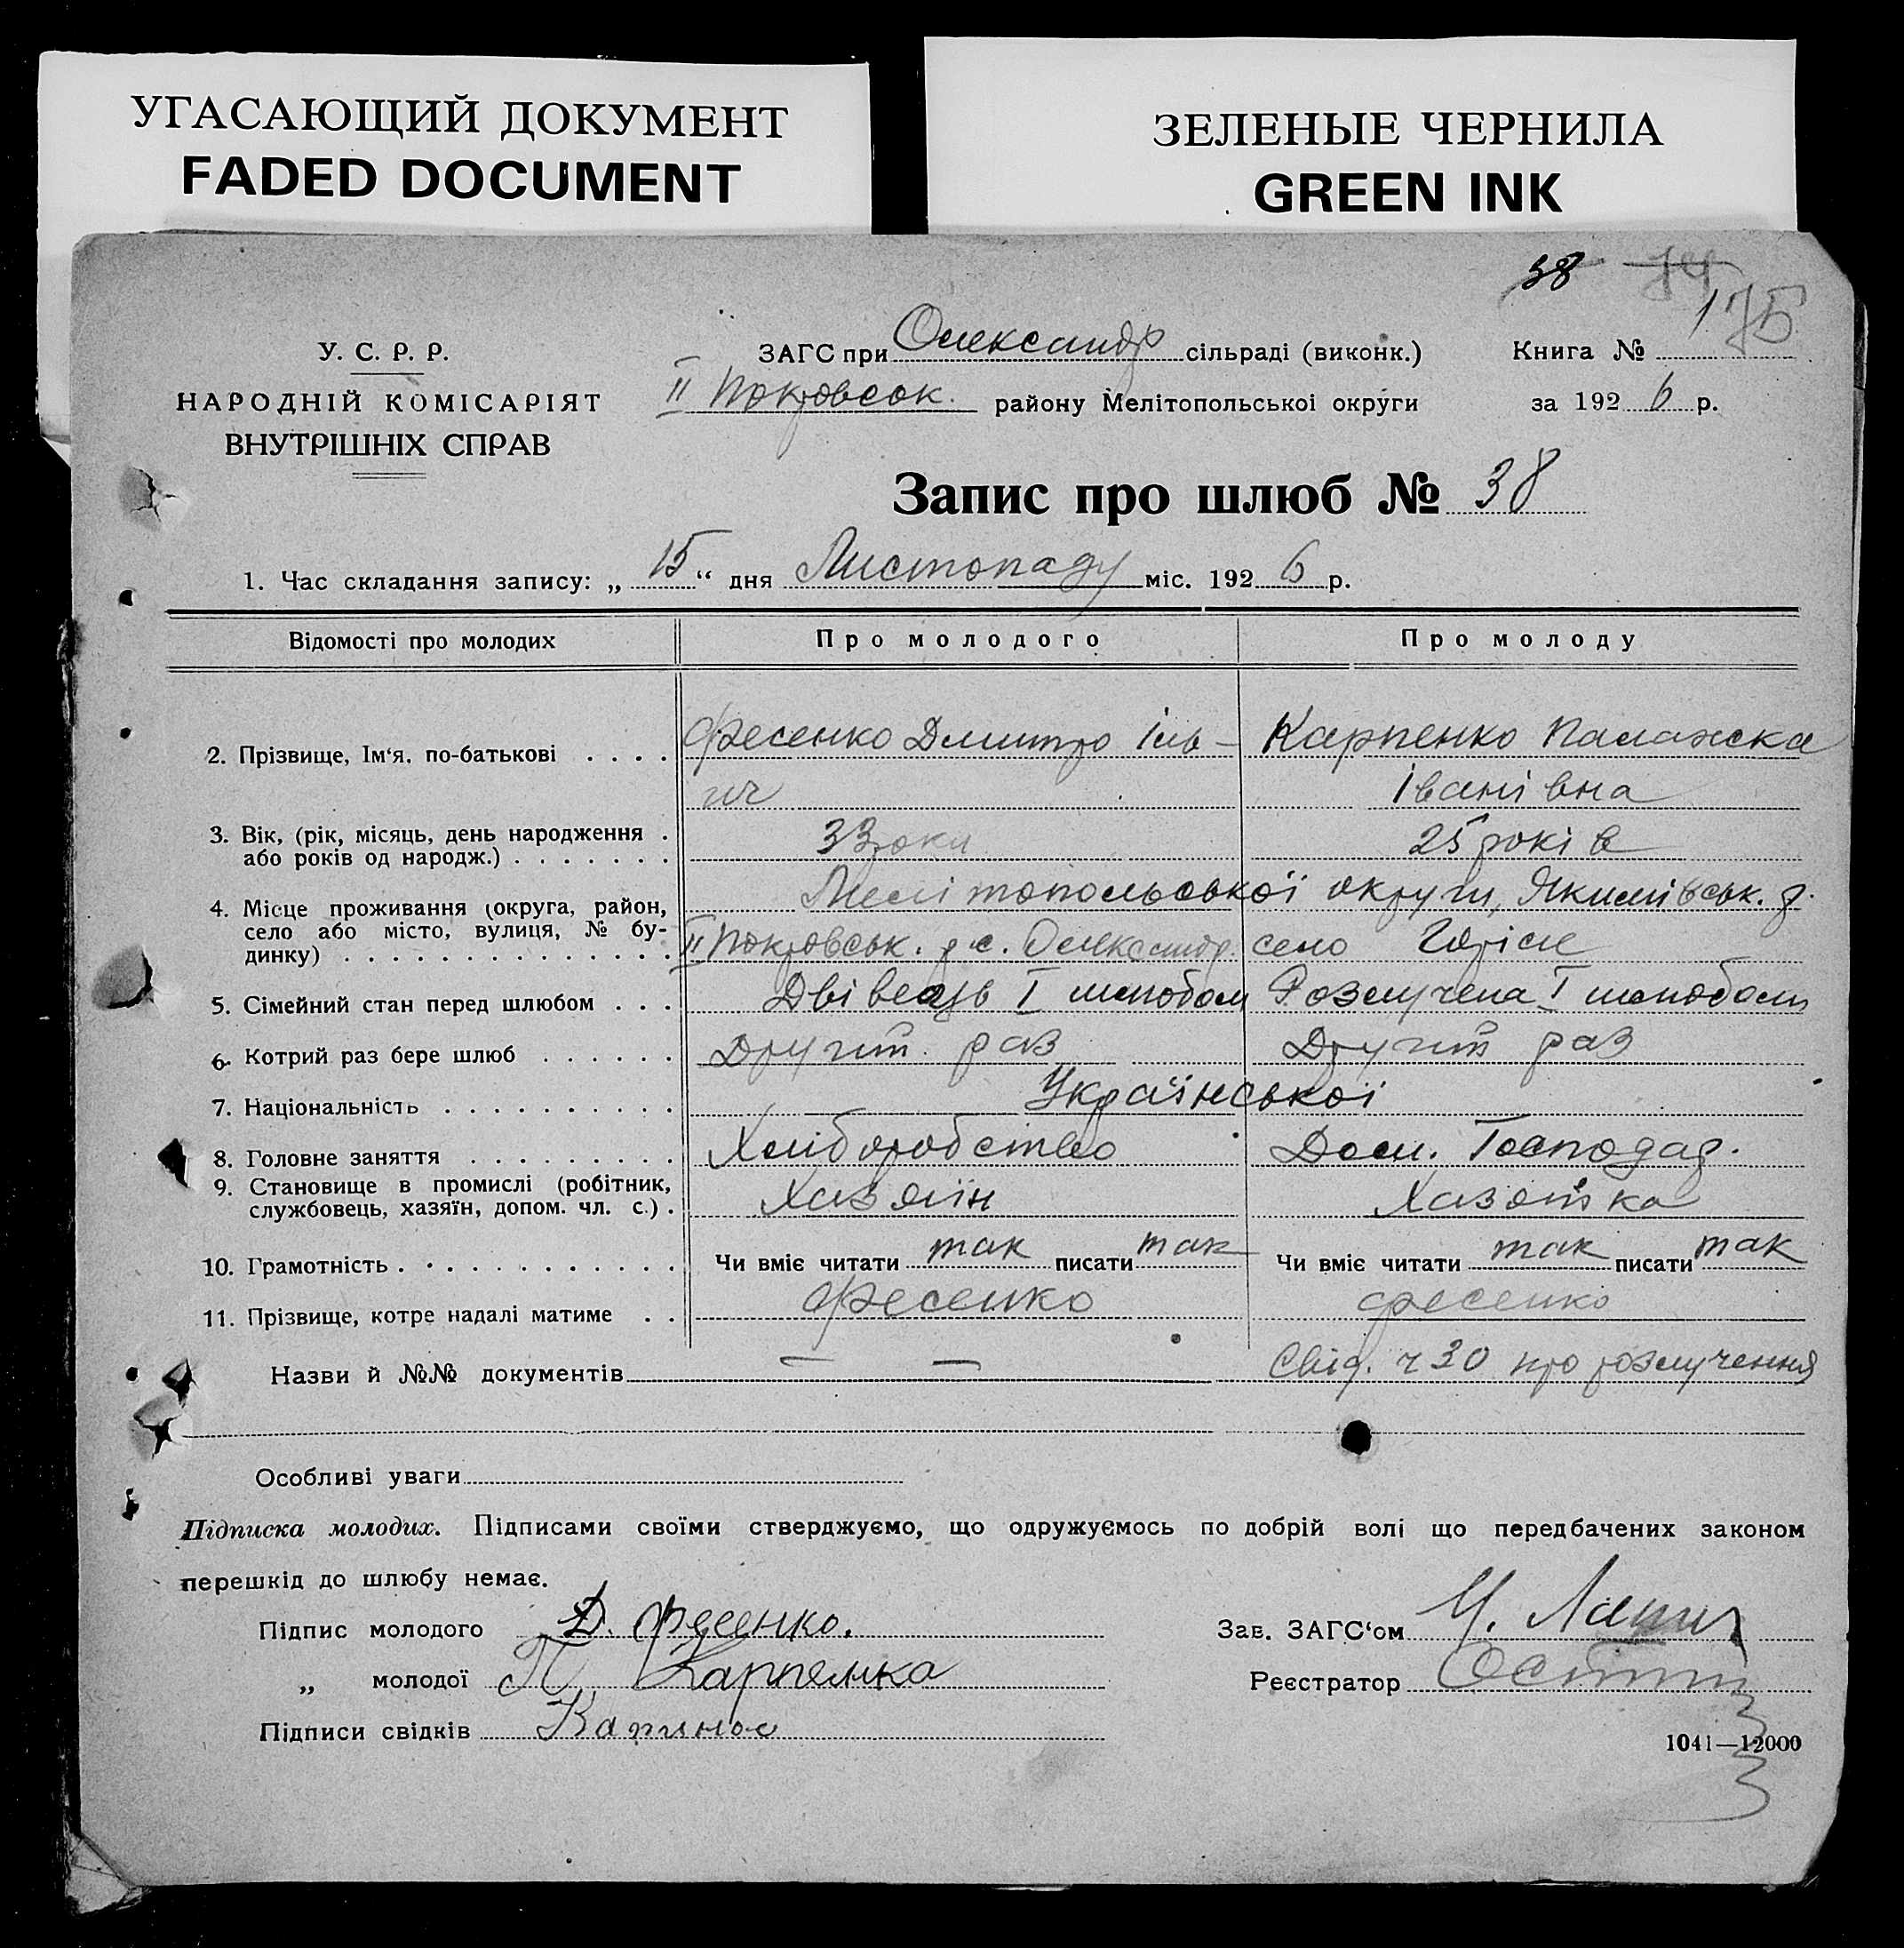 УГАСАЮЩИЙ ДОКУМЕНТ
FADED DOCUMENT
ЗЕЛЕНЫЕ ЧЕРНИЛА
GREEN INK
38 74
175
У. С. Р. Р.
НАРОДНІЙ КОМІСАРІЯТ
ВНУТРІШНІХ СПРАВ
ЗАГС при Олександр сільраді (виконк.)
II Покровськ. району Мелітопольської округи
Книга №
за 1926 р.
Запис про шлюб № 38
1. Час складання запису: „15“ дня Листопаду міс. 1926 р.
Відомості про молодих Про молодого Про молоду
2. Прізвище, Ім‘я, по-батькові . . . . Фесенко Дмитро Іль- Карпенко Палажска
ич Іванівна
3. Вік, (рік, місяць, день народження . 33 роки 25 років
або років од народж.) . . . . . . .
4. Місце проживання (округа, район, Мелітопольської округи, Якимівськ. р.
село або місто, вулиця, № бу- II Покровськ. р. с. Олександр. село
динку) . . . . . . . . . . . . . .
5. Сімейний стан перед шлюбом . . . I шлюбом Розлучена I шлюбом
6. Котрий раз бере шлюб . . . . . . Другий раз Другий раз
7. Національність . . . . . . . . . . Української
8. Головне заняття . . . . . . . . . Хліборобство Дом. Господар.
9. Становище в промислі (робітник, Хазяїн Хазяйка
службовець, хазяїн, допом. чл. с.) .
10. Грамотність . . . . . . . . . . . . Чи вміє читати так писати так Чи вміє читати так писати так
11. Прізвище, котре надалі матиме . . Фесенко Фесенко
Назви й №№ документів — — Свід. ч 30 про розлучення
Особливі уваги
Підписка молодих. Підписами своїми стверджуємо, що одружуємось по добрій волі що передбачених законом
перешкід до шлюбу немає.
Підпис молодого Д. Фесенко.
„ молодої П Карпенко
Підписи свідків
Зав. ЗАГС‘ом
Реєстратор
1041—12000